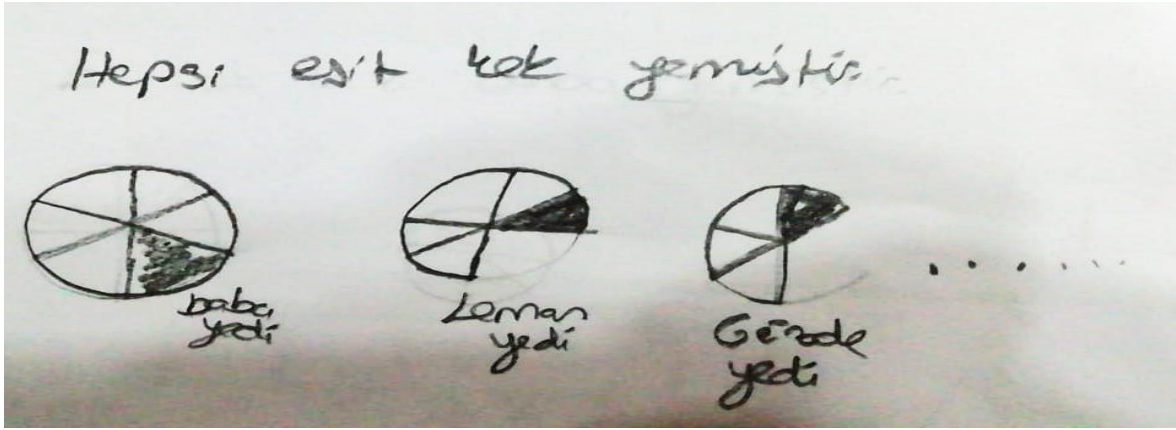 Hepsi eşit kek yemiştir.
baba
yedi
Leman
yedi
Gözde
yedi